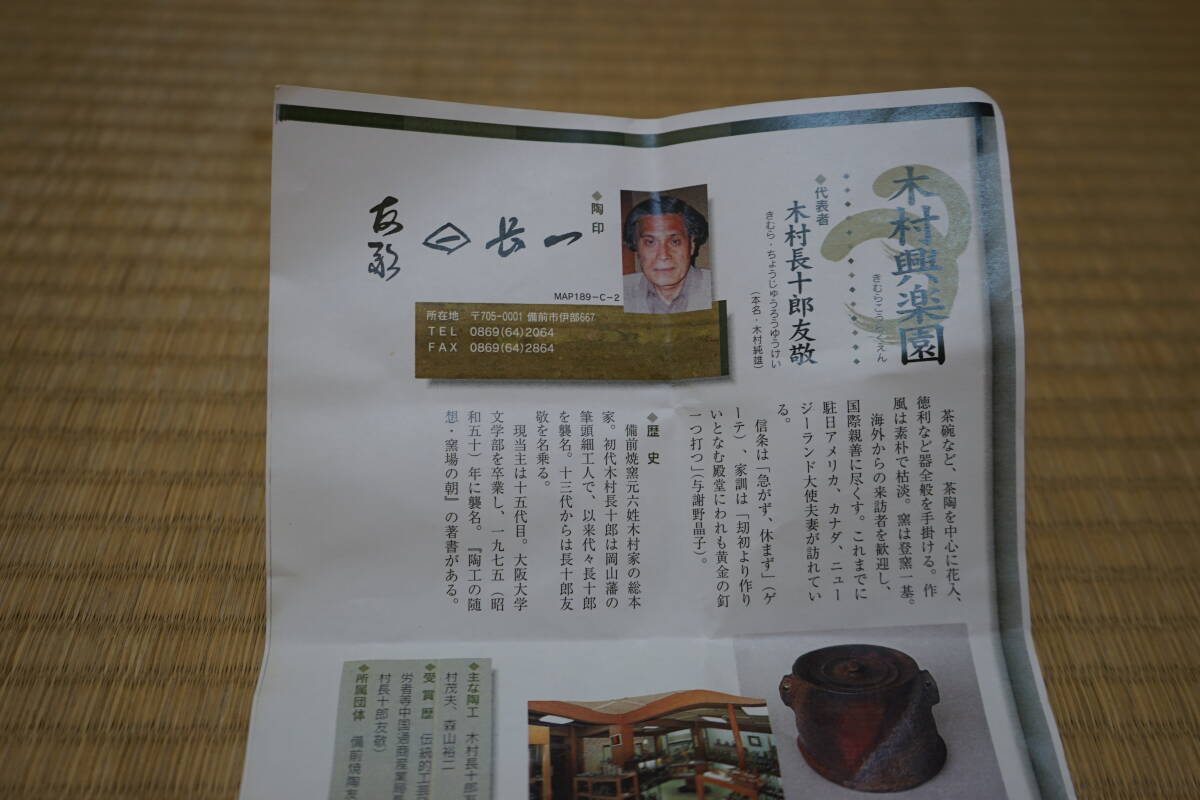 木村興楽園
きむらこうらくえん
◆代表者
木村長十郎友敬
きむら・ちょうじゅうろうゆうけい
（本名・木村純雄）
◆陶印
長一
友敬
MAP189-C-2
所在地 〒705-0001 備前市伊部667
TEL 0869(64)2064
FAX 0869(64)2864
茶碗など、茶陶を中心に花入、
徳利など器全般を手掛ける。作
風は素朴で枯淡。窯は登窯一基。
海外からの来訪者を歓迎し、
国際親善に尽くす。これまでに
駐日アメリカ、カナダ、ニュー
ジーランド大使夫妻が訪れてい
る。
信条は「急がず、休まず」（ゲ
ーテ）、家訓は「刧初より作り
いとなむ殿堂にわれも黄金の釘
一つ打つ」（与謝野晶子）。
◆歴史
備前焼窯元六姓木村家の総本
家。初代木村長十郎は岡山藩の
筆頭細工人で、以来代々長十郎
を襲名。十三代からは長十郎友
敬を名乗る。
現当主は十五代目。大阪大学
文学部を卒業し、一九七五（昭
和五十）年に襲名。『陶工の随
想・窯場の朝』の著書がある。
◆主な陶工 木村長十郎友
村茂夫、森山裕二
◆受賞歴 伝統的工芸
労者等中国通商産業局長
村長十郎友敬）
◆所属団体 備前焼陶友